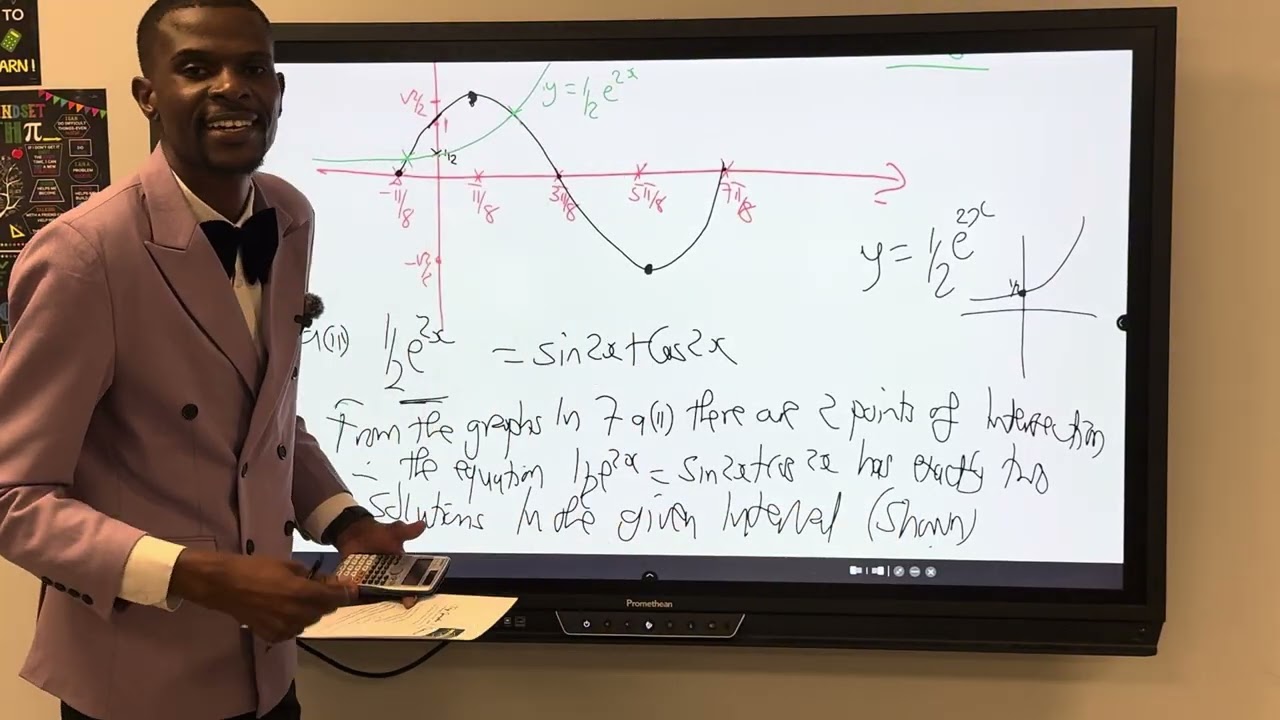 TO
EARN!
MINDSET
π
y = 1/2 e^2x
√2/2
1
1/2
-π/8
π/8
3π/8
5π/8
7π/8
-√2/2
y = 1/2 e^2x
1/2
a(ii) 1/2 e^2x = sin2x + Cos2x
From the graphs in 7a(ii) there are 2 points of Intersection
∴ the equation 1/2e^2x = sin2x+cos2x has exactly two
solutions in the given Interval (Shown)
Promethean